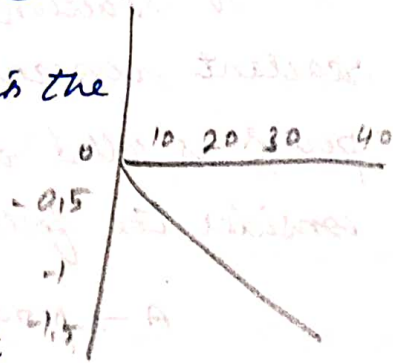 is the
10 20 30 40
0
-0,5
-1
-1,5